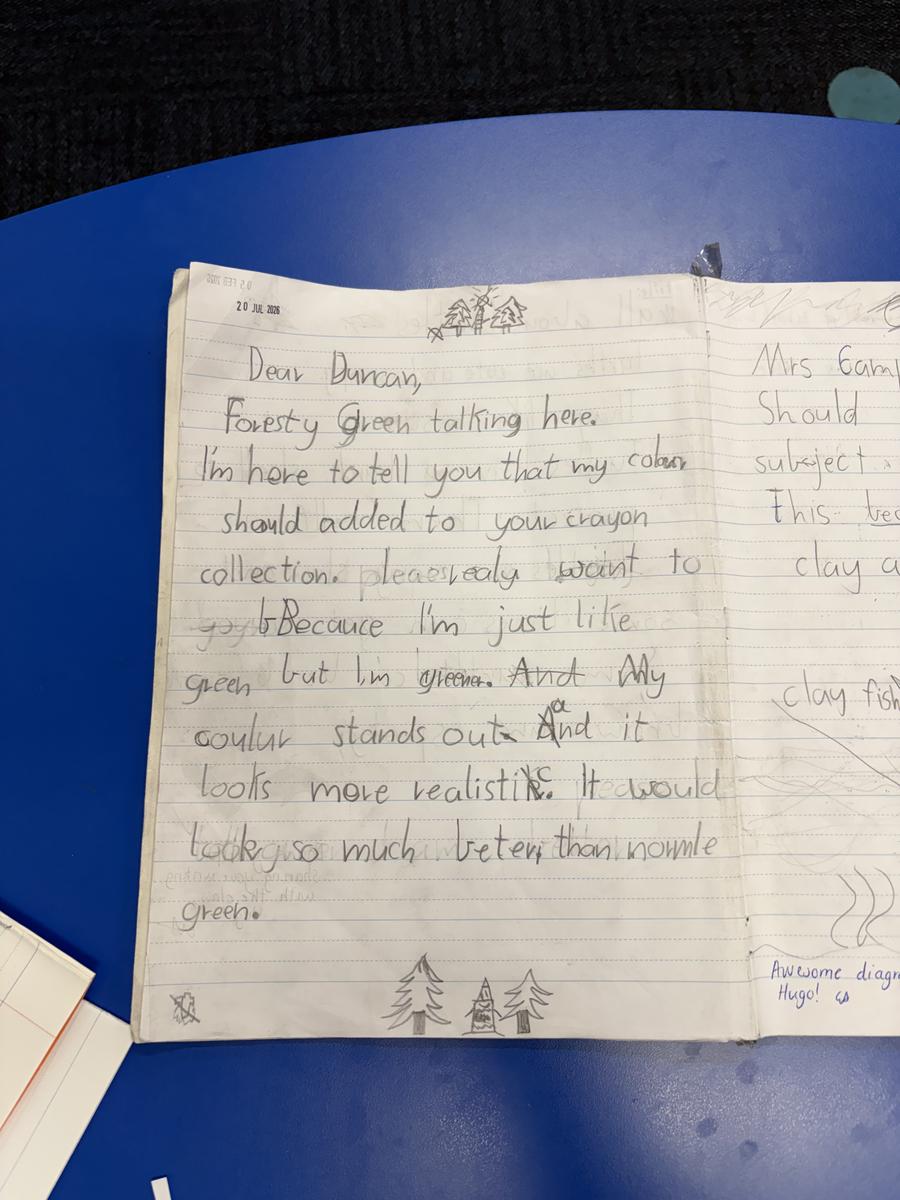 20 JUL 2026
Dear Duncan,
Foresty Green talking here.
I'm here to tell you that my colour
should added to your crayon
collection. realy want to
Becauce I'm just like
green but I'm greener. And My
coulur stands out and it
looks more realistic. It would
look so much beter, than normle
green.
Mrs
Should
subject
This
clay
clay fish
Awesome
Hugo!